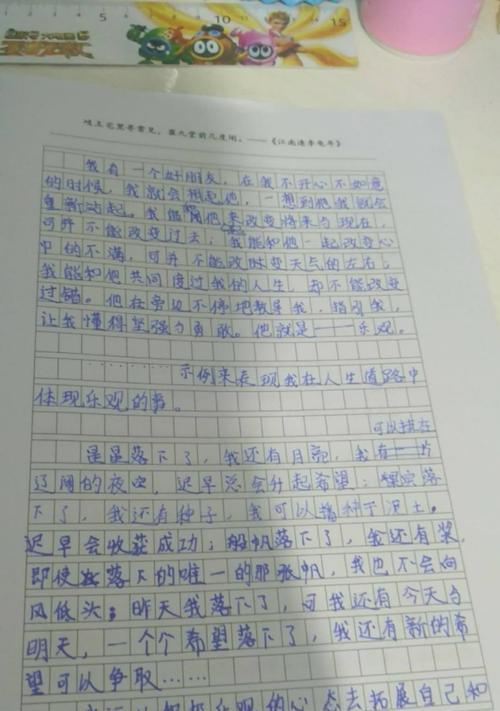 5 10 15
岐王宅里寻常见,崔九堂前几度闻。——《江南逢李龟年》
我有一个好朋友,在我不开心不如意
的时候,我就会想起他,一想到他我就会
重新动起。我能用他来改变将来与现在,
可并不能改变过去;我能和他一起改变心
中的不满,可并不能改变天气的左右;
我能和他共同度过我的人生,却不能改变
过错。他在旁边不停地教导我,指引我,
让我懂得坚强与勇敢。他就是——乐观。
……示例来表现我在人生道路中
体现乐观的事。
可以挂在
星星落下了,我还有月亮,我有一片
辽阔的夜空,迟早总会升起希望;果实落
下了,我还有种子,我可以播种于泥土。
迟早会收获成功;船帆落下了,我还有桨,
即使落下的唯一的那张帆,我也不会向
风低头;昨天我落下了,可我还有今天与
明天,一个个希望落下了,我还有新的希
望可以争取……
的心态去拓展自己和